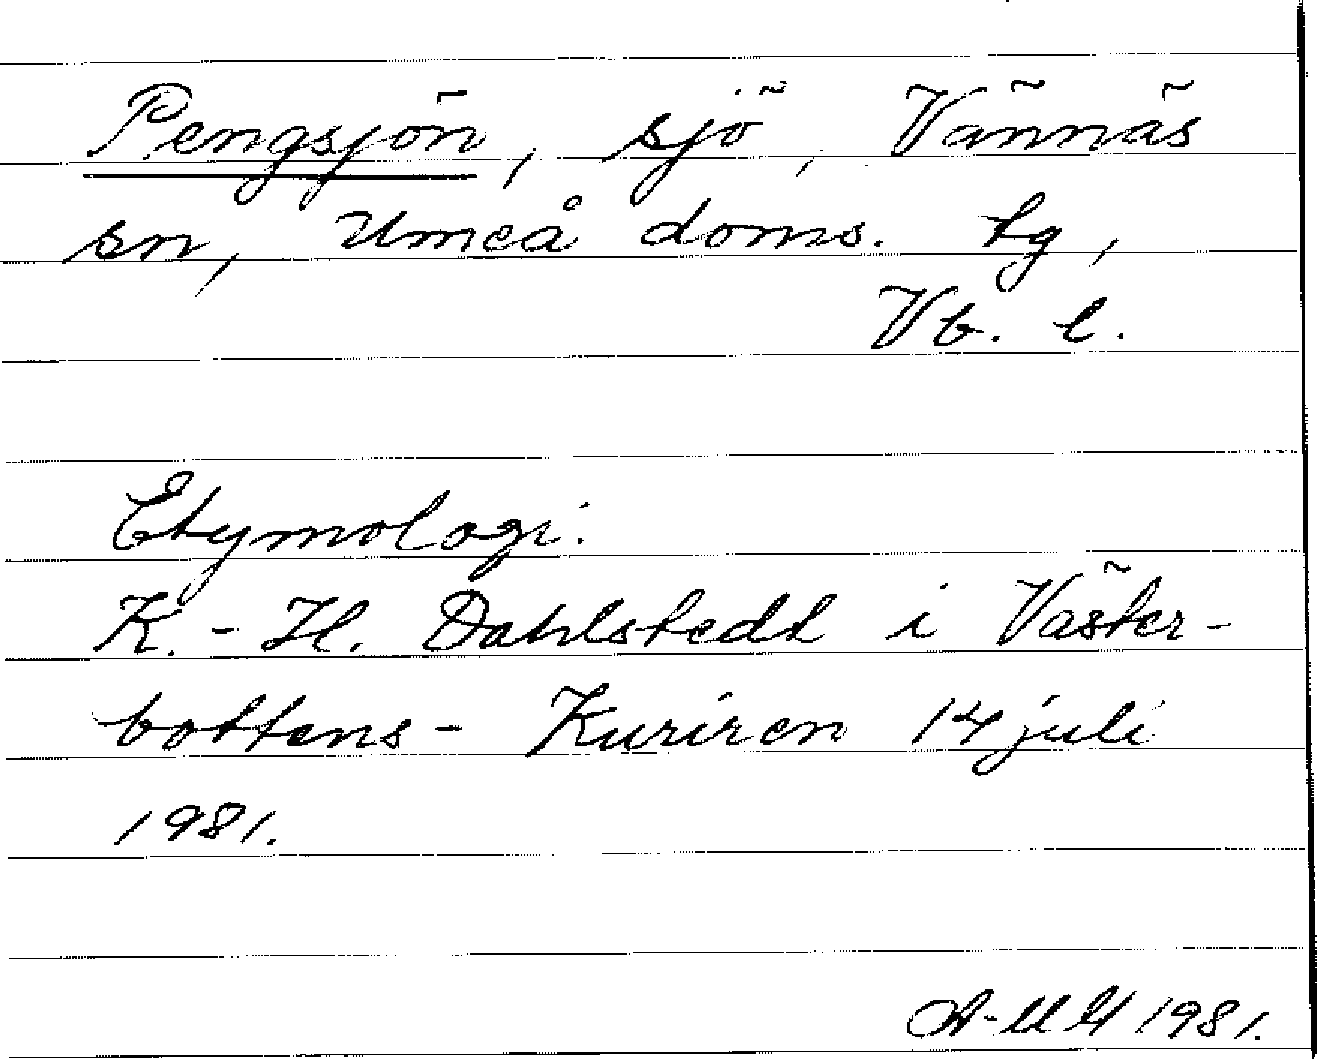 Pengsjön, sjö, Vännäs
sn, Umeå doms. tg,
Vb. l.
Etymologi:
K.-H. Dahlstedt i Väster-
bottens-Kuriren 14 juli
1981.
1981.